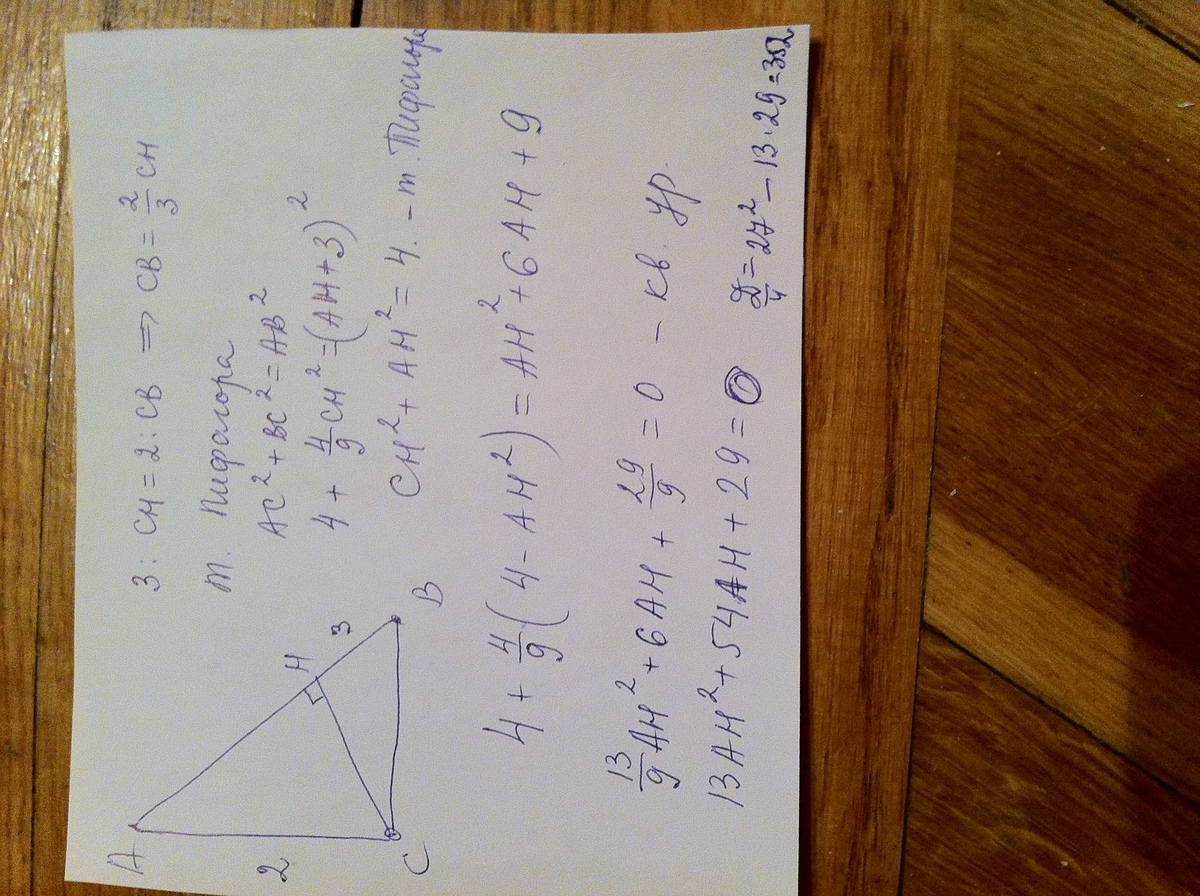 A
2
C
H
3
B
3 : CH = 2 : CB ⇒ CB = 2/3 CH
т. Пифагора
AC² + BC² = AB²
4 + 4/9 CH² = (AH + 3)²
CH² + AH² = 4. – т. Пифагора
4 + 4/9 (4 – AH²) = AH² + 6AH + 9
13/9 AH² + 6AH + 29/9 = 0 – кв. ур.
13AH² + 54AH + 29 = 0 D/4 = 27² – 13·29 = 352